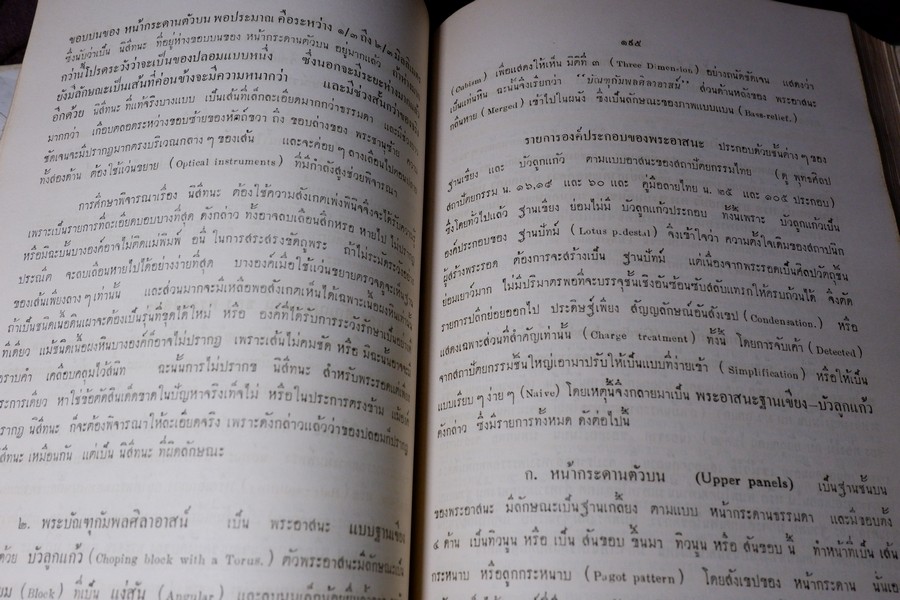 ขอบบนของ หน้ากระดานตัวบน พอประมาณ คือระหว่าง ๑/๓ ถึง ๒/๓ มิลลิเมตร
ซึ่งนับว่าเป็น นิสีทนะ ที่อยู่ห่างขอบบนของ หน้ากระดานตัวบน อยู่มากแล้ว ถ้าห่าง
กว่านี้โปรดระวังว่าจะเป็นของปลอมแบบหนึ่ง ซึ่งนอกจะมีระยะห่าง
ยังมีลักษณะเป็นเส้นที่ค่อนข้างจะมีความหนากว่า และมีช่วงสั้นกว่าของ
อีกด้วย นิสีทนะ ที่แท้จริงบางแบบ เป็นเส้นที่เล็กละเอียดมากกว่าธรรมดา และมีช่วงยาว
มากกว่า เกือบตลอดระหว่างขอบซ้ายของหัตถ์ขวา ถึง ขอบล่างของ พระชานุซ้าย
ชัดเจนจะมีปรากฏมากตรงบริเวณกลาง ๆ ของเส้น และจะค่อย ๆ ลางเลือนไปตอน
ทั้งสองด้าน ต้องใช้แว่นขยาย (Optical instruments) ที่มีกำลังสูงช่วยพิจารณา
การศึกษาพิจารณาเรื่อง นิสีทนะ ต้องใช้ความสังเกตเพ่งพินิจจึงจะได้รับความรู้
เพราะเป็นรายการที่ละเอียดบอบบางที่สุด ดังกล่าว ทั้งอาจลบเลือนสึกหรอ หายไป ไม่ปรากฏ
หรือมิฉะนั้นบางองค์อาจไม่ติดแม่พิมพ์ อนึ่ง ในการสระสรงขัดถูพระ ถ้าไม่ระมัดระวัง
ประณีต จะลบเลือนหายไปได้อย่างง่ายที่สุด บางองค์เมื่อใช้แว่นขยายตรวจดูจะเห็น
ของเส้นเพียงลาง ๆ เท่านั้น และส่วนมากจะมีเหลือพอสังเกตเห็นได้เฉพาะเนื้อผงหินเท่านั้น
ถ้าเป็นชนิดเนื้อดินเผาจะต้องเป็นรุ่นที่ขุดได้ใหม่ หรือ องค์ที่ได้รับการระวังรักษาเป็นอย่างดี
ทีเดียว แม้ชนิดเนื้อผงหินบางองค์ก็อาจไม่ปรากฏ เพราะเส้นไม่คมชัด หรือ มิฉะนั้นอาจมี
ราบคำ เคลือบคลุมไว้สนิท ฉะนั้นการไม่ปรากฏ นิสีทนะ สำหรับพระรอดแต่เพียง
ประการเดียว หาใช่ข้อตัดสินเด็ดขาดในปัญหาจริงเท็จไม่ หรือในประการตรงข้าม แม้องค์
รากฏ นิสีทนะ ก็จะต้องพิจารณาให้ละเอียดจริง เพราะดังกล่าวแล้วว่าของปลอมก็ปรากฏ
สีทนะ เหมือนกัน แต่เป็น นิสีทนะ ที่ผิดลักษณะ
๒. พระบัณฑุกัมพลศิลาอาสน์ เป็น พระอาสนะ แบบฐานเขียง
ด้วย บัวลูกแก้ว (Choping block with a Torus.) ตัวพระอาสนะมีลักษณะเป็น
(Block) ที่เป็น แง่สัน (Angular)
๑๙๕
(Cubism) เพื่อแสดงให้เห็น มิติที่ ๓ (Three Dimension) อย่างถนัดชัดเจน แสดงว่า
เป็นแท่นหิน ฉะนั้นจึงเรียกว่า "บัณฑุกัมพลศิลาอาสน์" ส่วนด้านหลังของ พระอาสนะ
กลืนหาย (Merged) เข้าไปในผนัง ซึ่งเป็นลักษณะของภาพแบบแบน (Bass-relief.)
รายการองค์ประกอบของพระอาสนะ ประกอบด้วยชั้นต่าง ๆ ของ
ฐานเขียง และ บัวลูกแก้ว ตามแบบอาสนะของสถาปัตยกรรมไทย (ดู พุทธศิลป
สถาปัตยกรรม น. ๑๖,๑๙ และ ๖๐ และ คู่มือลายไทย น. ๒๕ และ ๑๐๕ ประกอบ)
ซึ่งโดยทั่วไปแล้ว ฐานเขียง ย่อมไม่มี บัวลูกแก้วประกอบ ทั้งนี้เพราะ บัวลูกแก้วเป็น
องค์ประกอบของ ฐานปัทม์ (Lotus p.destal) จึงเข้าใจว่า ความตั้งใจเดิมของสถาปนิก
ผู้สร้างพระรอด ต้องการจะสร้างเป็น ฐานปัทม์ แต่เนื่องจากพระรอดเป็นศิลปวัตถุชิ้น
ย่อมเยาว์มาก ไม่มีปริมาตรพอที่จะบรรจุชั้นเชิงอันซ้อนซับสลับแทรกให้ครบถ้วนได้ จึงตัด
รายการปลีกย่อยออกไป ประดิษฐ์เพียง สัญญลักษณ์อันสังเขป (Condensation.) หรือ
แสดงเฉพาะส่วนที่สำคัญเท่านั้น (Charge treatment) ทั้งนี้ โดยการจับเค้า (Detected)
จากสถาปัตยกรรมชิ้นใหญ่เอามาปรับให้เป็นแบบที่ง่ายเข้า (Simplification) หรือให้เป็น
แบบเรียบ ๆ ง่าย ๆ (Naive) โดยเหตุนี้จึงกลายมาเป็น พระอาสนะฐานเขียง—บัวลูกแก้ว
ดังกล่าว ซึ่งมีรายการทั้งหมด ดังต่อไปนี้
ก. หน้ากระดานตัวบน (Upper panels) เป็นฐานชั้นบน
ของพระอาสนะ มีลักษณะเป็นฐานเกลี้ยง ตามแบบ หน้ากระดานธรรมดา และมีขอบทั้ง
๔ ด้าน เป็นทิวนูน หรือ เป็น สันขอบ ขึ้นมา ทิวนูน หรือ สันขอบ นี้ ทำหน้าที่เป็น เส้น
กระหนาบ หรือลูกกระหนาบ (Pagot pattern) โดยสังเขปของ หน้ากระดาน นั่นเอง